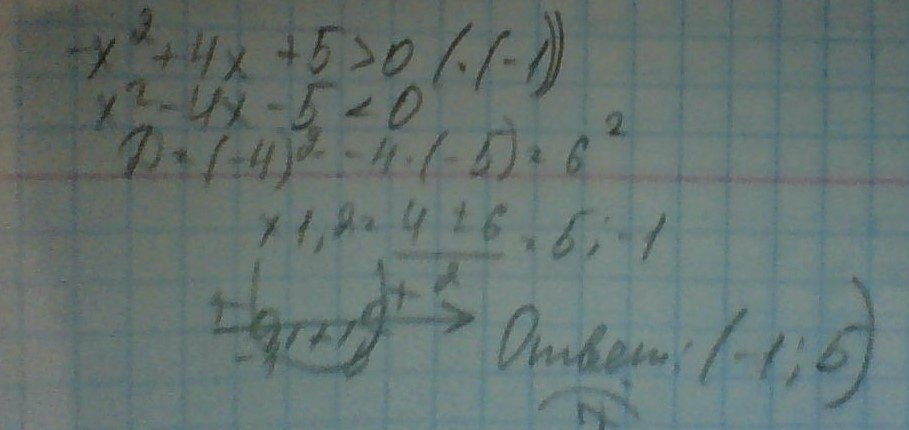 -x² + 4x + 5 > 0 (·(-1))
x² - 4x - 5 < 0
D = (-4)² - 4·(-5) = 6²
x1,2 = (4 ± 6)/2 = 5; -1
+ - +
-1 5
Ответ: (-1; 5)